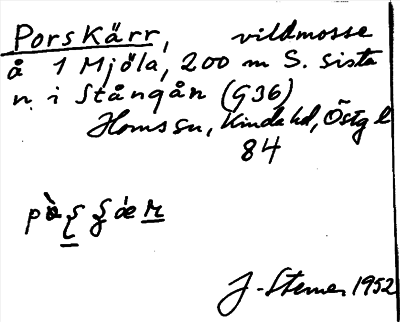 Porskärr, vildmosse
å 1 Mjöla, 200 m S. sista
n. i Stångån (G36)
Homssn, Kinda hd, Östg l
84
J. Stemer 1952